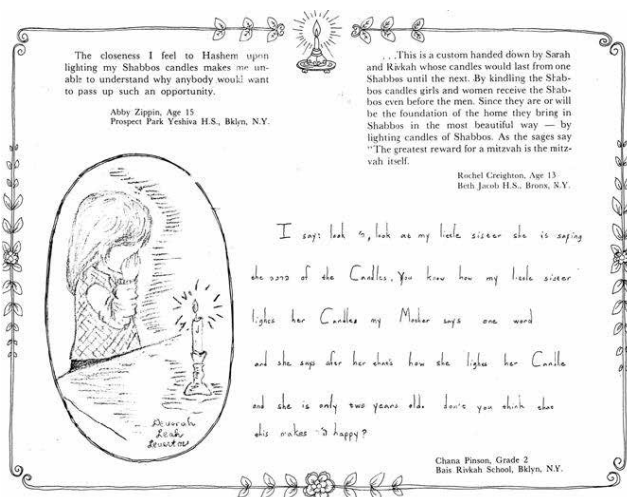 The closeness I feel to Hashem upon
lighting my Shabbos candles makes me un-
able to understand why anybody would want
to pass up such an opportunity.
Abby Zippin, Age 15
Prospect Park Yeshiva H.S., Bklyn, N.Y.
. . .This is a custom handed down by Sarah
and Rivkah whose candles would last from one
Shabbos until the next. By kindling the Shab-
bos candles girls and women receive the Shab-
bos even before the men. Since they are or will
be the foundation of the home they bring in
Shabbos in the most beautiful way — by
lighting candles of Shabbos. As the sages say
"The greatest reward for a mitzvah is the mitz-
vah itself.
Rochel Creighton, Age 13
Beth Jacob H.S., Bronx, N.Y.
I say: look , look at my little sister she is saying
the ברכה of the Candles. You know how my little sister
lights her Candles my Mother says one word
and she says after her that's how she lights her Candle
and she is only two years old. don't you think that
this makes happy?
Devorah
Leah
Levertov
Chana Pinson, Grade 2
Bais Rivkah School, Bklyn, N.Y.